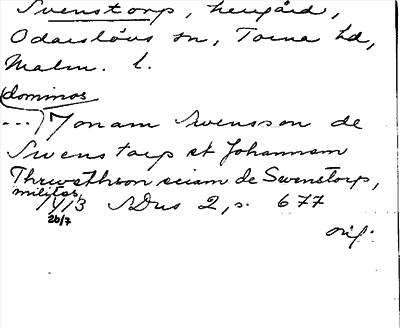 Svenstorp, herrgård,
Odarslövs sn, Torna hd,
Malm. l.
dominos
---) Jonam Swensson de
Swenstorp et Johannem
Thrwethson eciam de Swenstorp,
milites,
1413 SDns 2, s. 677
20/7
orig.